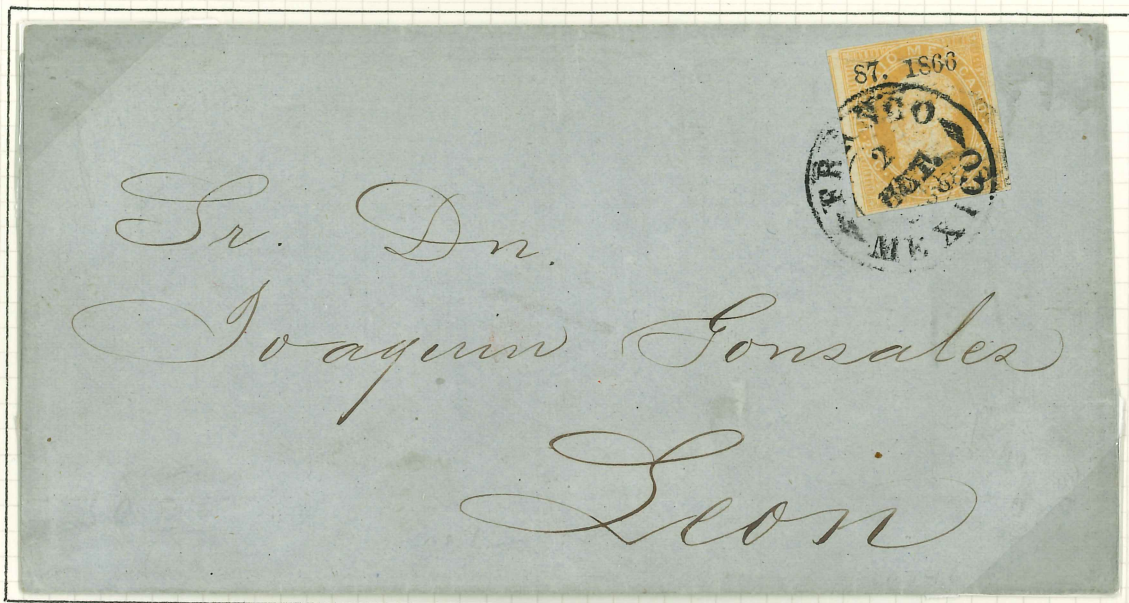 87. 1866
FRANCO
2
MEXICO
Sr. Dn.
Joaquin Gonsales
Leon